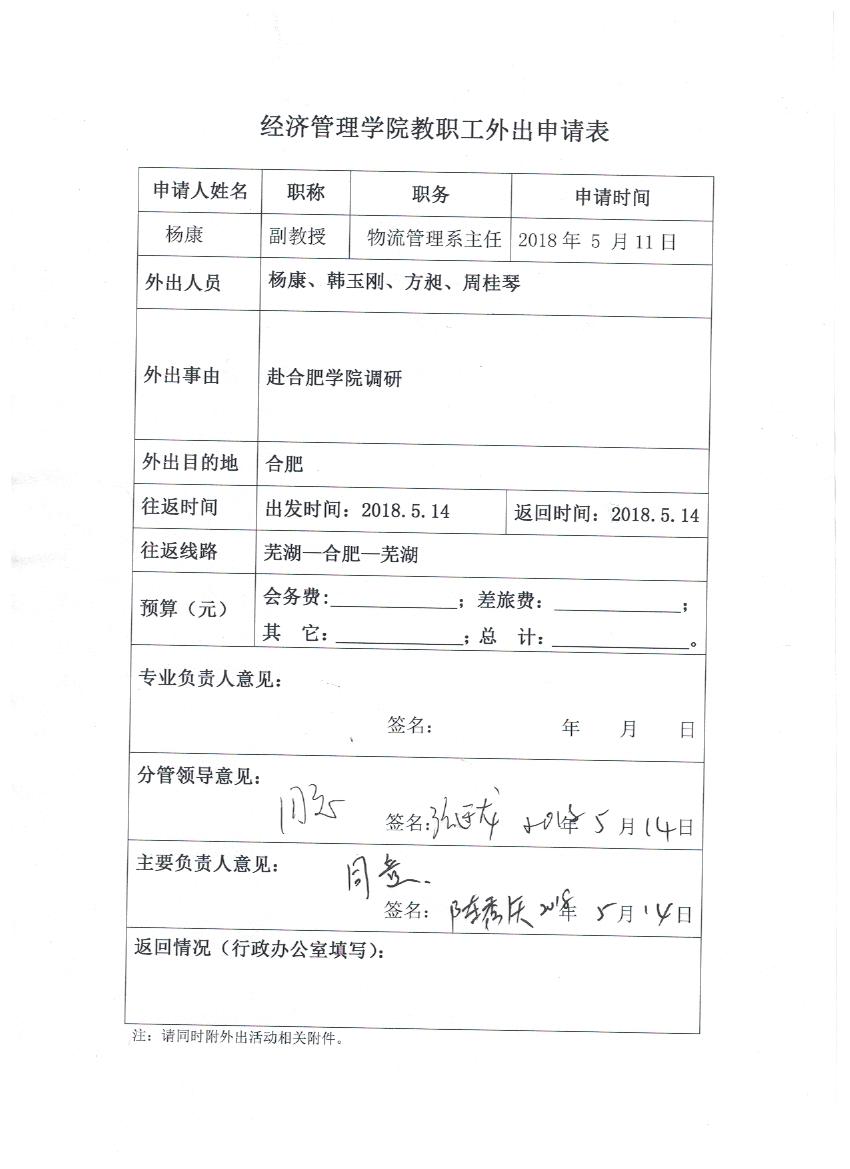 经济管理学院教职工外出申请表
申请人姓名 职称 职务 申请时间
杨康 副教授 物流管理系主任 2018年 5 月11日
外出人员 杨康、韩玉刚、方昶、周桂琴
外出事由 赴合肥学院调研
外出目的地 合肥
往返时间 出发时间：2018.5.14 返回时间：2018.5.14
往返线路 芜湖—合肥—芜湖
预算（元） 会务费：____________；差旅费：____________；
其 它：____________；总 计：____________。
专业负责人意见：
签名： 年 月 日
分管领导意见：
同意
签名: 2018年 5 月 14日
主要负责人意见：
同意.
签名： 2018年 5月 14日
返回情况（行政办公室填写）：
注：请同时附外出活动相关附件。